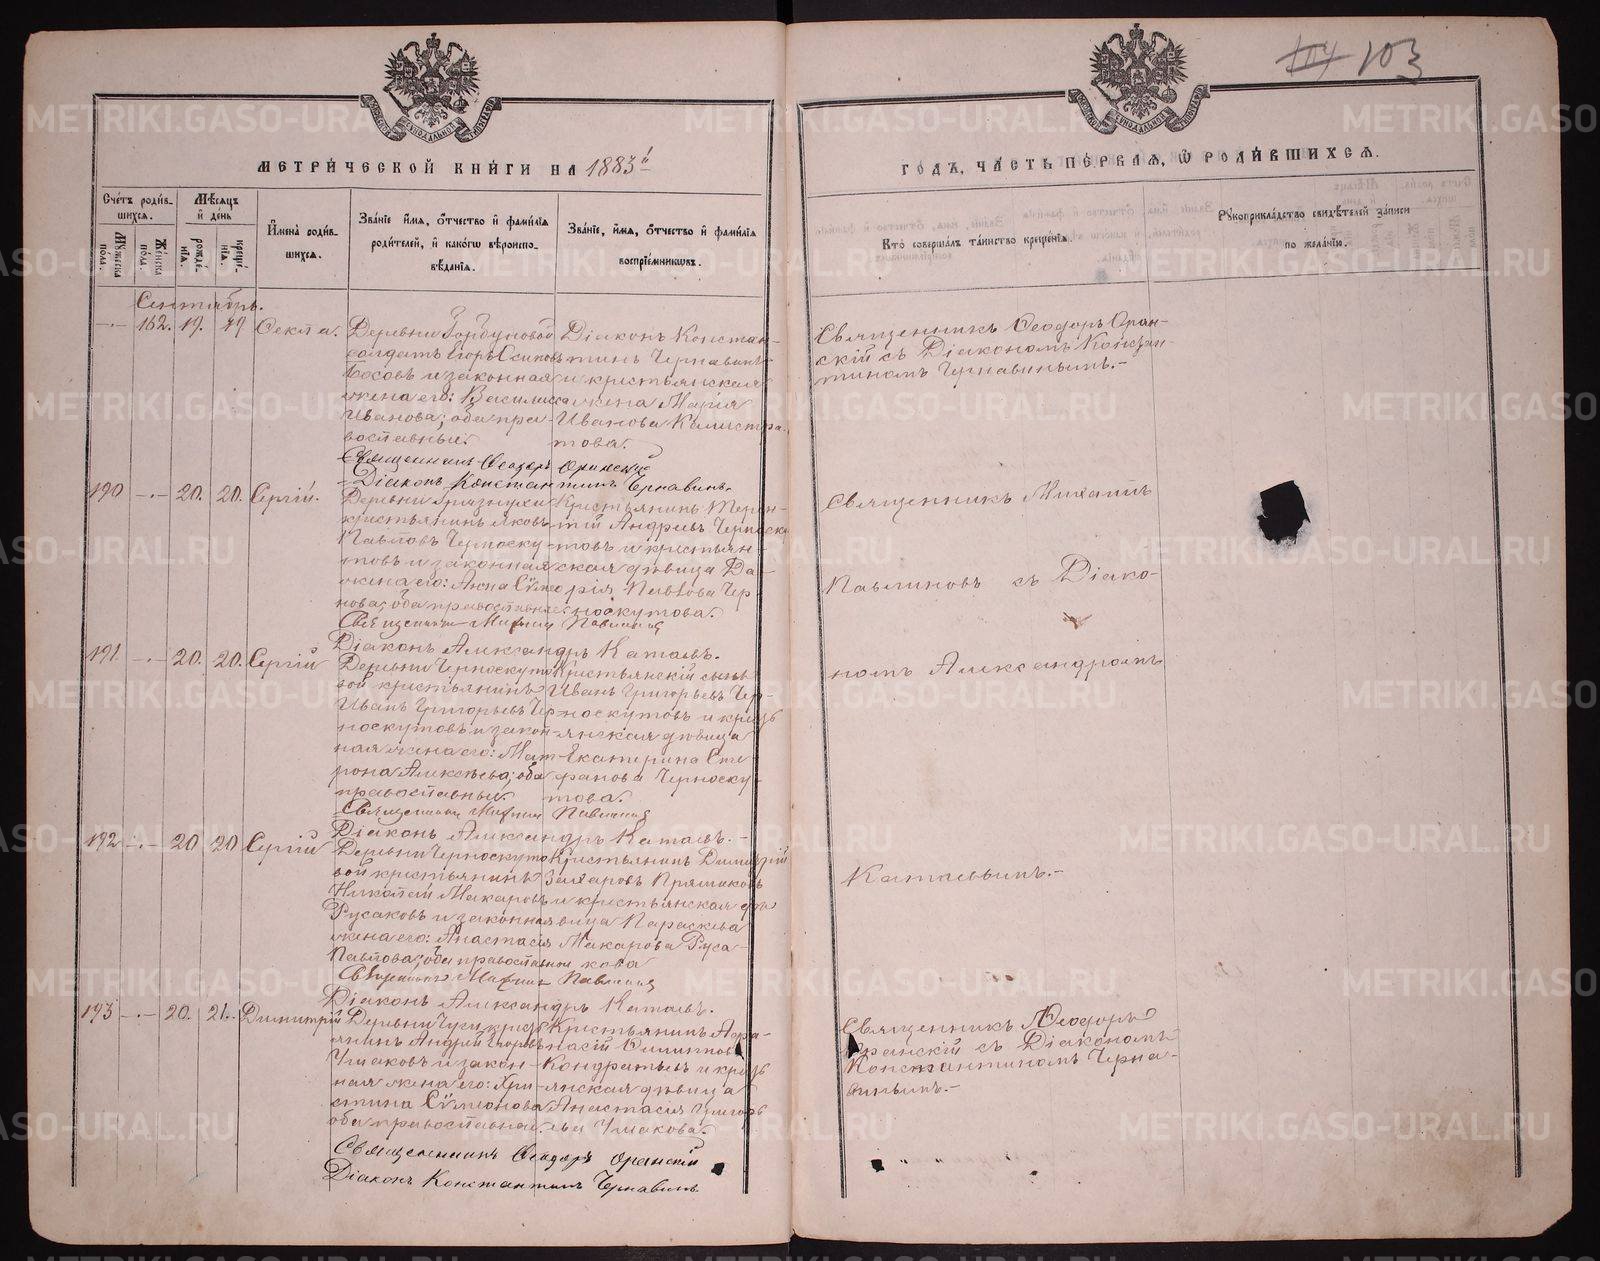 103
МЕТРИ́ЧЕСКОЙ КНИ́ГИ НА 1883й
ГОДЪ, ЧА́СТЬ ПЕ́РВАЯ, Ѡ РОДИ́ВШИХСЯ.
Сче́тъ роди́в-
шихся.
Му́жеска
пола.
Же́нска
пола.
Мѣ́сяцъ
и҆ де́нь
рожде́-
нїя.
креще́-
нїя.
И҆мена̀ роди́в-
шихся.
Зва́нїе и҆мя, ѻ҆́тчество и҆ фами́лїя
роди́телей, и҆ како́гѡ вѣроиспо-
вѣ́данїя.
Зва́нїе, и҆́мя, ѻ҆́тчество и҆ фами́лїя
воспрїе́мникѡвъ.
Кто̀ соверша́лъ та́инство креще́нїя.
Рукоприкла́дство свидѣ́телей за́писи
по жела́нїю.
Сентябрь.
162. 19. 19 Ѳекла.
Деревни Горбуновой
солдатъ Егоръ
Босовъ и законная
жена его: Василисса
Иванова; оба пра-
вославные.
Дiаконъ Констан-
тинъ Чернавинъ
и крестьянская
жена Марiя
Иванова Калистра-
това.
Священникъ Ѳеодоръ Оранскiй
Дiаконъ Константинъ Чернавинъ.
Священникъ Ѳеодоръ Оран-
скiй съ Дiакономъ Констан-
тиномъ Чернавинымъ.-
190 -.- 20. 20. Сергiй.
Деревни Грязнухи
крестьянинъ Яковъ
Павловъ Черноску-
товъ и законная
жена его: Анна Сѵмео-
нова; оба православные.
Крестьянинъ Терен-
тiй Андреевъ Черноску-
товъ и крестьян-
ская дѣвица Да-
рiя Павлова Чер-
носкутова.
Священникъ Михаилъ Павлиновъ
Дiаконъ Александръ Катаевъ.
191. -.- 20. 20. Сергiй
Деревни Черноскуто-
вой крестьянинъ
Иванъ Григорьевъ Чер-
носкутовъ и закон-
ная жена его: Мат-
рона Алексѣева; оба
православные.
Крестьянскiй сынъ
Иванъ Григорьевъ Чер-
носкутовъ и кресть
янская дѣвица
Екатерина Сте-
фанова Черноску-
това.
Священникъ Михаилъ Павлиновъ
Дiаконъ Александръ Катаевъ.-
192 -.- 20 20 Сергiй
Деревни Черноскуто
вой крестьянинъ
Николай Макаровъ
Русаковъ и законная
жена его: Анастасiя
Павлова; оба православные
Крестьянинъ Димитрiй
Захаровъ Прямиковъ
и крестьянская дѣ-
вица Параскева
Макарова Руса-
кова
Священникъ Михаилъ Павлиновъ
Дiаконъ Александръ Катаевъ.
Священникъ Михаилъ
Павлиновъ съ Дiако-
номъ Александромъ
Катаевымъ.-
193 -.- 20. 21. Димитрiй
Деревни кресть
янинъ Андрей Егоровъ
Ушаковъ и закон-
ная жена его: Хри-
стина Сѵмеонова
оба православные
Крестьянинъ Аѳа-
насiй Филипповъ
Кондратьевъ и кресть
янская дѣвица
Анастасiя Григорь
ева Ушакова.
Священникъ Ѳеодоръ Оранскiй
Дiаконъ Константинъ Чернавинъ
Священникъ Ѳеодоръ
Оранскiй съ Дiакономъ
Константиномъ Черна-
винымъ.-
METRIKI.GASO-URAL.RU